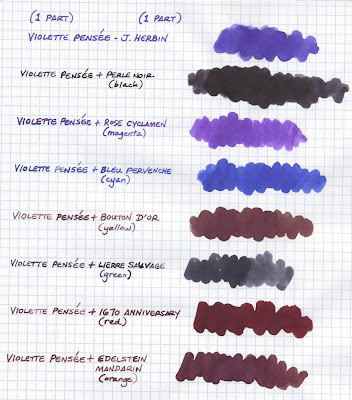 (1 PART) (1 PART)
VIOLETTE PENSÉE - J. HERBIN
VIOLETTE PENSÉE + PERLE NOIR
(black)
VIOLETTE PENSÉE + ROSE CYCLAMEN
(magenta)
VIOLETTE PENSÉE + BLEU PERVENCHE
(cyan)
VIOLETTE PENSÉE + BOUTON D'OR
(yellow)
VIOLETTE PENSÉE + LIERRE SAUVAGE
(green)
VIOLETTE PENSÉE + 1670 ANNIVERSARY
(red)
VIOLETTE PENSÉE + EDELSTEIN
MANDARIN
(orange)